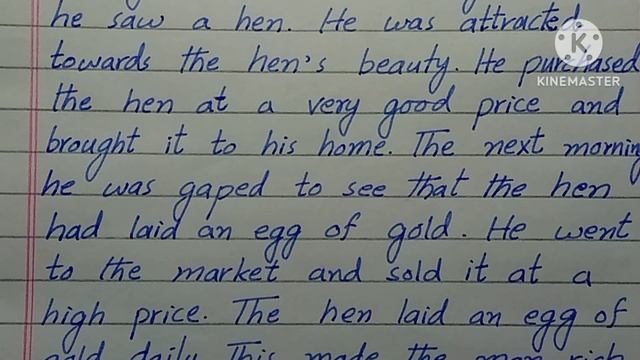 he saw a hen. He was attracted
towards the hen's beauty. He purchased
the hen at a very good price and
brought it to his home. The next morning
he was gaped to see that the hen
had laid an egg of gold. He went
to the market and sold it at a
high price. The hen laid an egg of
gold daily. This made the man rich
KINEMASTER